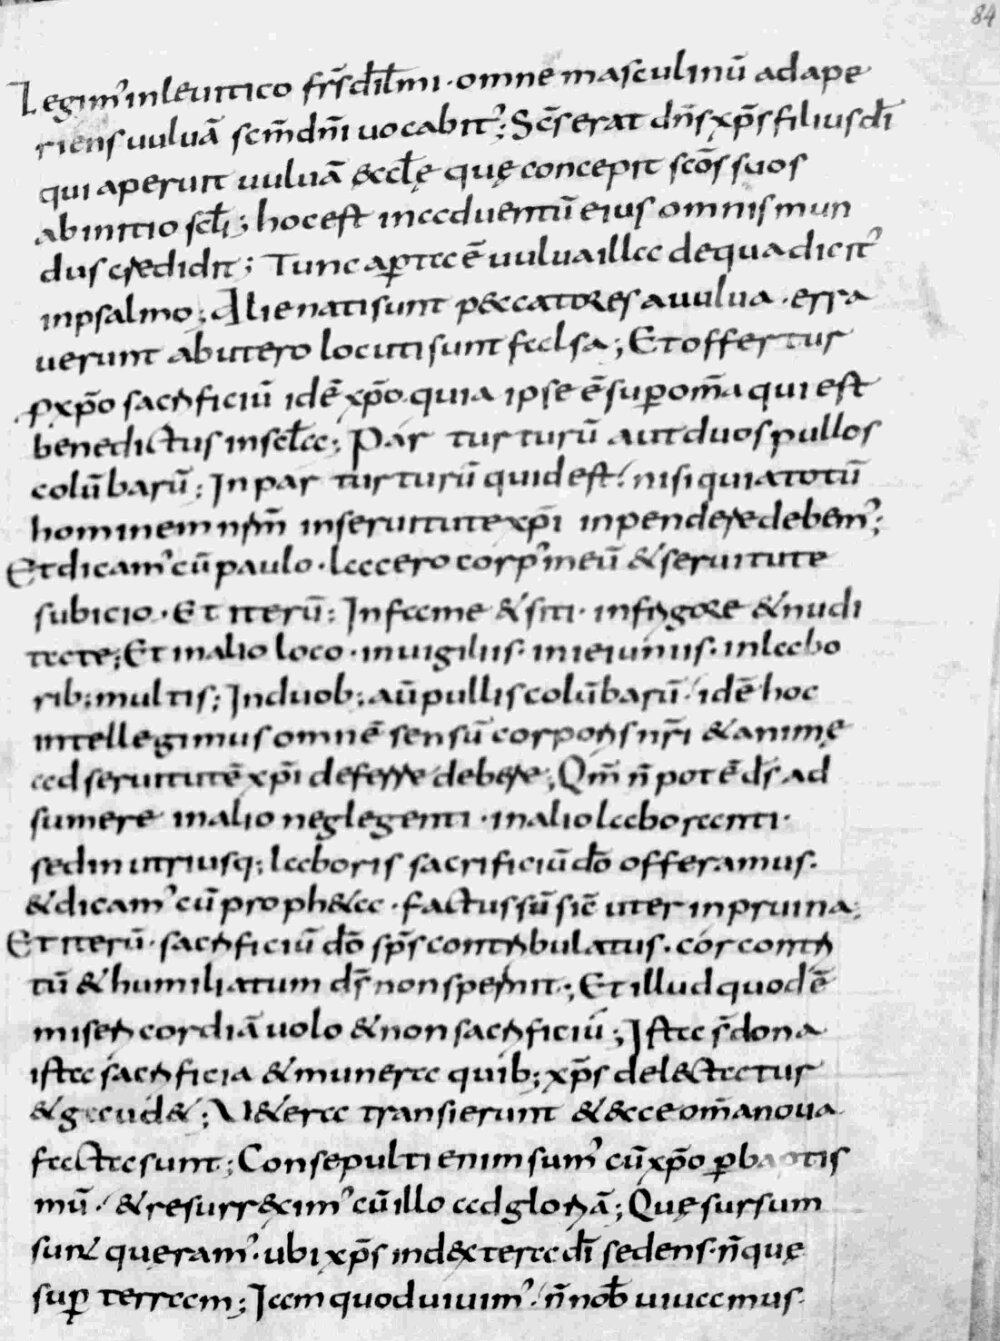 84
Legim᾽ inleuitico fr̄s dil̄mi · omne masculinū adape
riens uuluā scm̄ dn̄i uocabit᾽; Sc̄s erat dn̄s xp̄s filius dī
qui aperuit uuluā &ccl̄ę quę concepit scōs suos
abinitio scl̄i; hoc est inaduentū eius omnis mun
dus credidit; Tunc aꝑta ē uulua illa dequa dicit᾽
inpsalmo; Alienati sunt p&catores auulua · erra
uerunt abutero locuti sunt falsa; Et offertur
ꝓ xp̄o sacrificiū idē xp̄o · quia ipse ē suꝑ om̄a qui est
benedictus inscl̄a; Par turturū aut duos pullos
colūbarū; In par turturū quid est / nisi quia totū
hominem nr̄m inseruitute xp̄i inpendere debem᾽;
Et dicam᾽ cū paulo · lacero corp᾽ meū & seruitute
subicio · Et iterū; In fame & siti · infrigore & nudi
tate; Et inalio loco · inuigiliis · inieiuniis · inlabo
rib; multis; In duob; aū pullis colūbarū / idē hoc
intellegimus omnē sensū corporis nr̄i & animę
ad seruitutē xp̄i deferre debere; Qm̄ n̄ potē ds̄ ad
sumere inalio neglegenti · inalio laboranti ·
sed in utriusq; laboris sacrificiū dō offeramus ·
& dicam᾽ cū proph&a · factus sū sic̄ uter inpruina;
Et iterū · sacrificiū dō sp̄s contribulatus · cor contri
tū & humiliatum ds̄ non spernit; Et illud quod ē
misericordiā uolo & non sacrificiū; Ista s̄ dona
ista sacrificia & munera quib; xp̄s del&ctatur
& gaud&; U&era transierunt & &cce om̄a noua
facta sunt; Consepulti enim sum᾽ cū xp̄o ꝑ baptis
mū / & resurr&xim᾽ cū illo ad gloriā; Quę sursum
sunt queram᾽ · ubi xp̄s indextera dī sedens · n̄ quę
suꝑ terram; Iam quod uiuim᾽ / n̄ nob̄ uiuamus ·